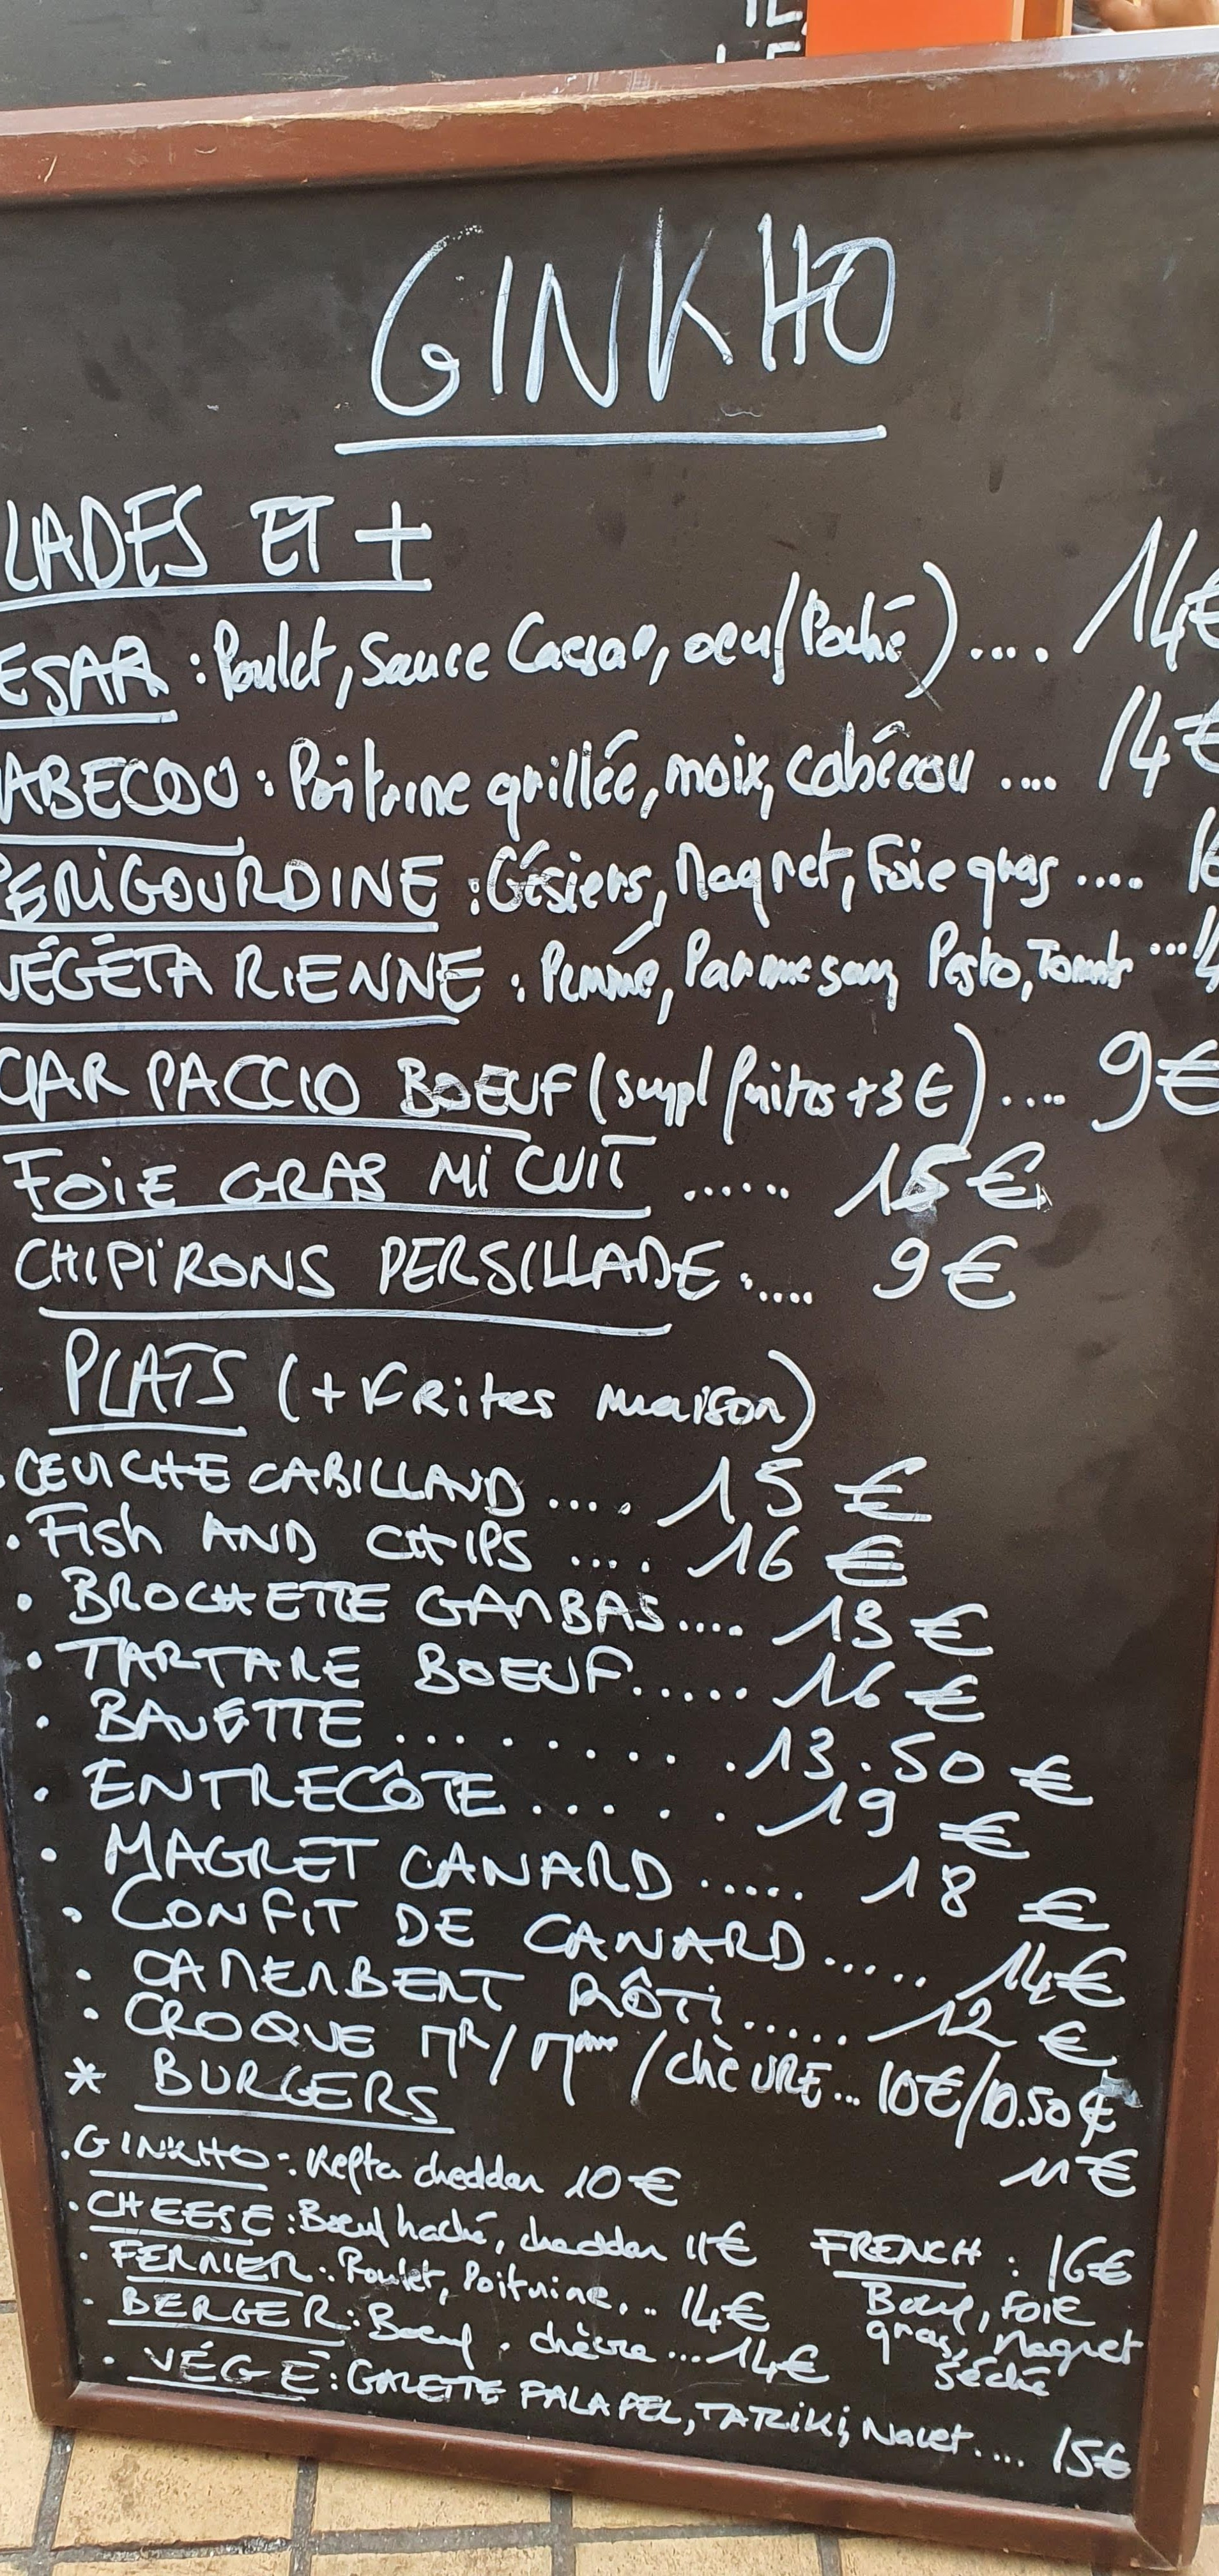 GINKHO
LADES ET +
ESAR : Poulet, Sauce Caesar, oeuf Poché) .... 14€
ABECOU : Poitrine grillée, noix, cabécou .... 14€
PERIGOURDINE : Gésiers, Magret, Foie gras .... 16
VÉGÉTARIENNE : Penné, Parmesan, Pesto, Tomate ... 14
CARPACCIO BOEUF (suppl frites +3€) .... 9€
FOIE GRAS MI CUIT ...... 15€
CHIPIRONS PERSILLADE ..... 9€
PLATS (+ Frites maison)
. CEVICHE CABILLAUD .... 15 €
. FISH AND CHIPS .... 16 €
. BROCHETTE GAMBAS .... 13 €
. TARTARE BOEUF ..... 16 €
. BAVETTE ......... 13.50 €
. ENTRECÔTE ...... 19 €
. MAGRET CANARD ..... 18 €
. CONFIT DE CANARD ..... 14€
. CAMEMBERT RÔTI ..... 12 €
. CROQUE MR / Mame / chèVRE ... 10€/10.50€
11€
* BURGERS
. GINKHO : Kefta cheddar 10€
. CHEESE : Boeuf haché, cheddar 11€
. FERMIER : Poulet, Poitrine... 14€
. BERGER : Boeuf, chèvre ... 14€
FRENCH : 16€
Boeuf, FOIE
gras, Magret
séché
. VÉGÉ : GALETTE FALAFEL, TATZIKI, Navet .... 15€